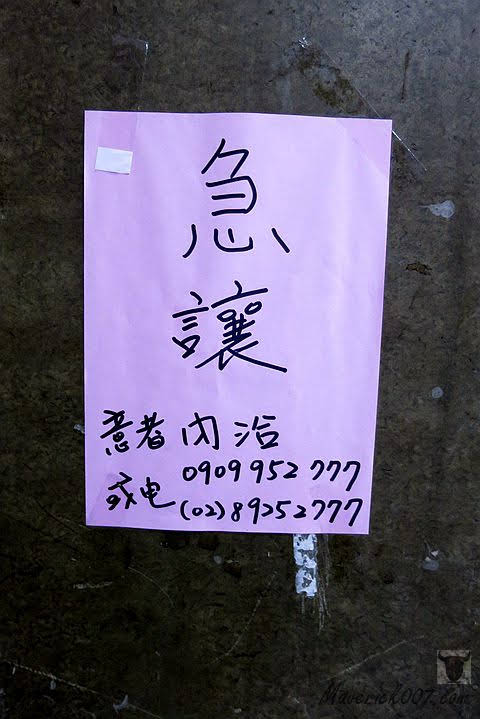 急
讓
意者內洽
或电
0909952777
(02)89252777
Maverick007.com